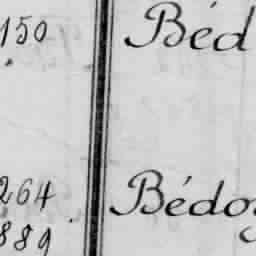 150 Béd
264 Bédo
889